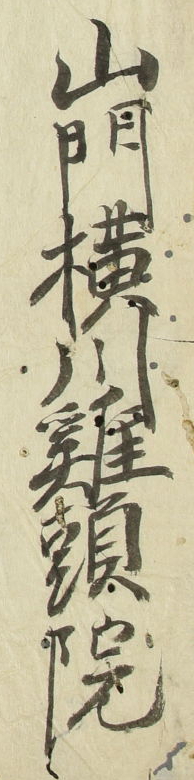 山門横川雞頭院